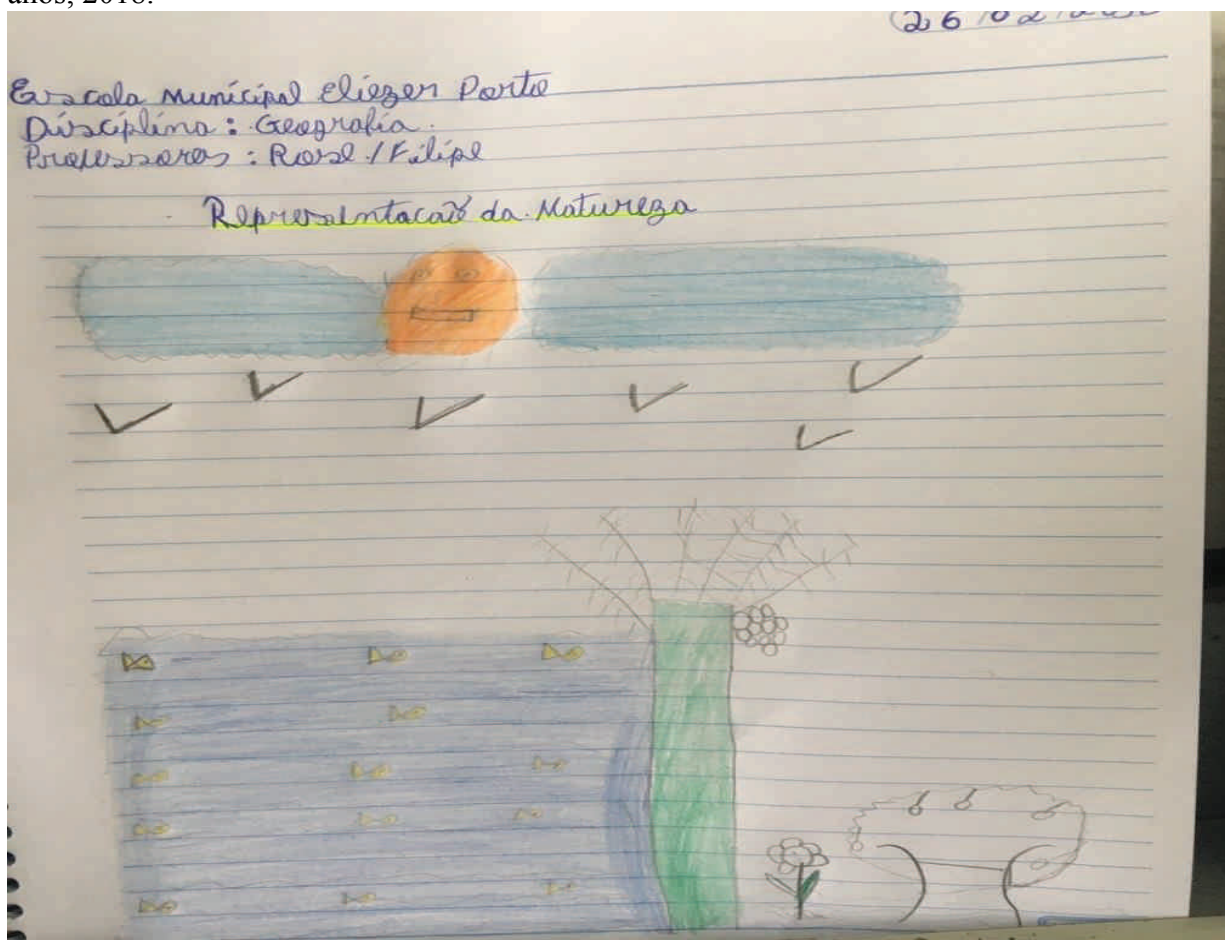 anos, 2018.
Escola Municipal Eliezer Porto
Disciplina: Geografia.
Professores: Rose / Filipe
Representação da Natureza